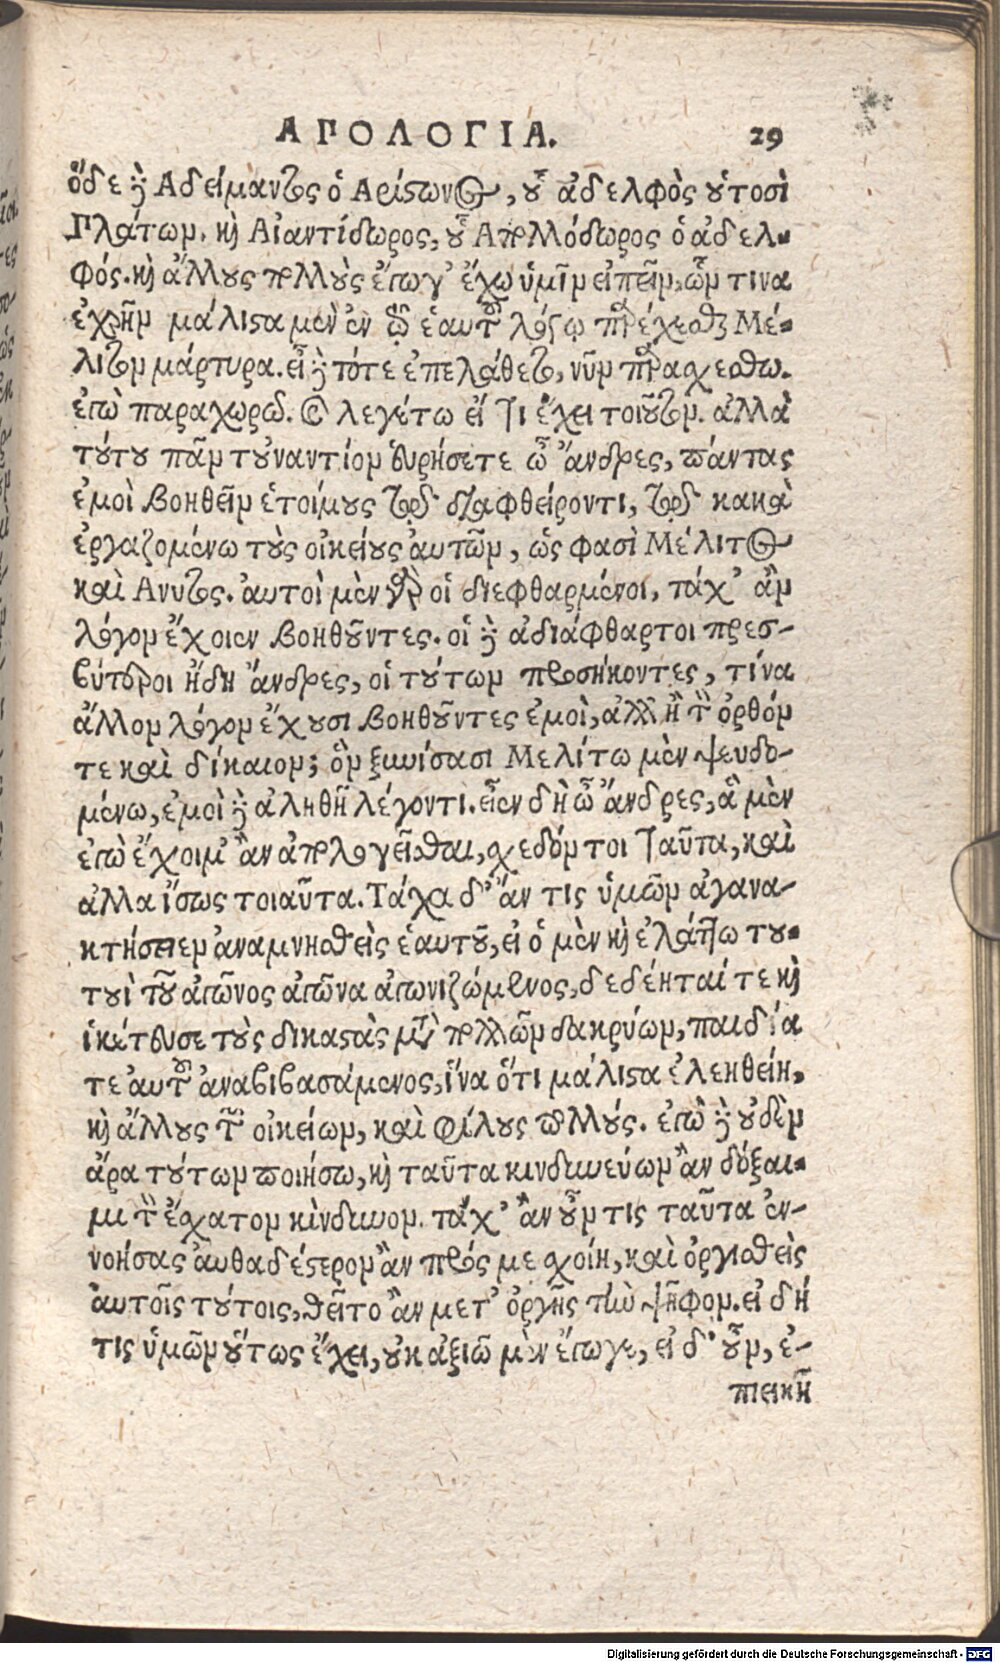 ΑΠΟΛΟΓΙΑ. 29
ὅδε δὲ Αδείμαντος ὁ Αρίστωνος, οὗ ἀδελφὸς οὑτοσὶ
Πλάτων. καὶ Αἰαντόδωρος, οὗ Απολλόδωρος ὁ ἀδελ-
φός. καὶ ἄλλους πολλοὺς ἔγωγ᾽ ἔχω ὑμῖν εἰπεῖν, ὧν τινα
ἐχρῆν μάλιστα μὲν ἐν τῷ ἑαυτοῦ λόγῳ παρέχεσθαι Μέ-
λιτον μάρτυρα. εἰ δὲ τότε ἐπελάθετο, νῦν παρασχέσθω.
ἐγὼ παραχωρῶ. καὶ λεγέτω εἴ τι ἔχει τοιοῦτον. ἀλλὰ
τούτου πᾶν τοὐναντίον εὑρήσετε ὦ ἄνδρες, πάντας
ἐμοὶ βοηθεῖν ἑτοίμους τῷ διαφθείροντι, τῷ κακὰ
ἐργαζομένω τοὺς οἰκείους αυτῶν, ὥς φασὶ Μέλιτος
καὶ Ανυτος. ἀυτοὶ μὲν γὰρ οἱ διεφθαρμένοι, τάχ᾽ ἂν
λόγον ἔχοιεν βοηθοῦντες. οἱ δὲ ἀδιάφθαρτοι πρεσ-
βύτεροι ἤδη ἄνδρες, οἱ τούτων προσήκοντες, τίνα
ἄλλον λόγον ἔχουσι βοηθοῦντες ἐμοὶ, ἀλλ᾽ ἢ τὸν ὀρθόν
τε καὶ δίκαιον; ὃν ξυνίσασι Μελίτω μὲν ψευδο-
μένω, ἐμοὶ δὲ ἀληθῆ λέγοντι. εἶεν δὴ ὦ ἄνδρες, ἃ μὲν
ἐγὼ ἔχοιμ᾽ ἂν ἀπολογεῖσθαι, σχεδόν τοι ταῦτα, καὶ
ἀλλα ἴσως τοιαῦτα. Τάχα δ᾽ ἄν τις ὑμῶν ἀγανα-
κτήσειεν ἀναμνησθεὶς ἑαυτοῦ, εἰ ὁ μὲν καὶ ἐλάττω του-
τουὶ τοῦ ἀγῶνος ἀγῶνα ἀγωνιζόμενος, δεδέηταί τε καὶ
ἱκέτευσε τοὺς δικαστὰς μετὰ πολλῶν δακρύων, παιδία
τε αυτοῦ ἀναβιβασάμενος, ἵνα ὅτι μάλιστα ἐλεηθείη,
καὶ ἄλλους τῶν οἰκείων, καὶ φίλους πολλούς. ἐγὼ δὲ οὐδὲν
ἄρα τούτων ποιήσω, καὶ ταῦτα κινδυνεύων ἂν δόξαι-
μι τὸν ἔσχατον κίνδυνον. τάχ᾽ ἂν οὖν τις ταῦτα ἐν-
νοήσας ἀυθαδέστερον ἂν πρός με σχοίη, καὶ ὀργισθεὶς
ἀυτοῖς τούτοις, θεῖτο ἂν μετ᾽ ὀργῆς τὴν ψῆφον. εἰ δή
τις ὑμῶν οὕτως ἔχει, οὐκ ἀξιῶ μὲν ἔγωγε, εἰ δ᾽ οὖν, ἐ-
πιεικῆ
Digitalisierung gefördert durch die Deutsche Forschungsgemeinschaft - DFG